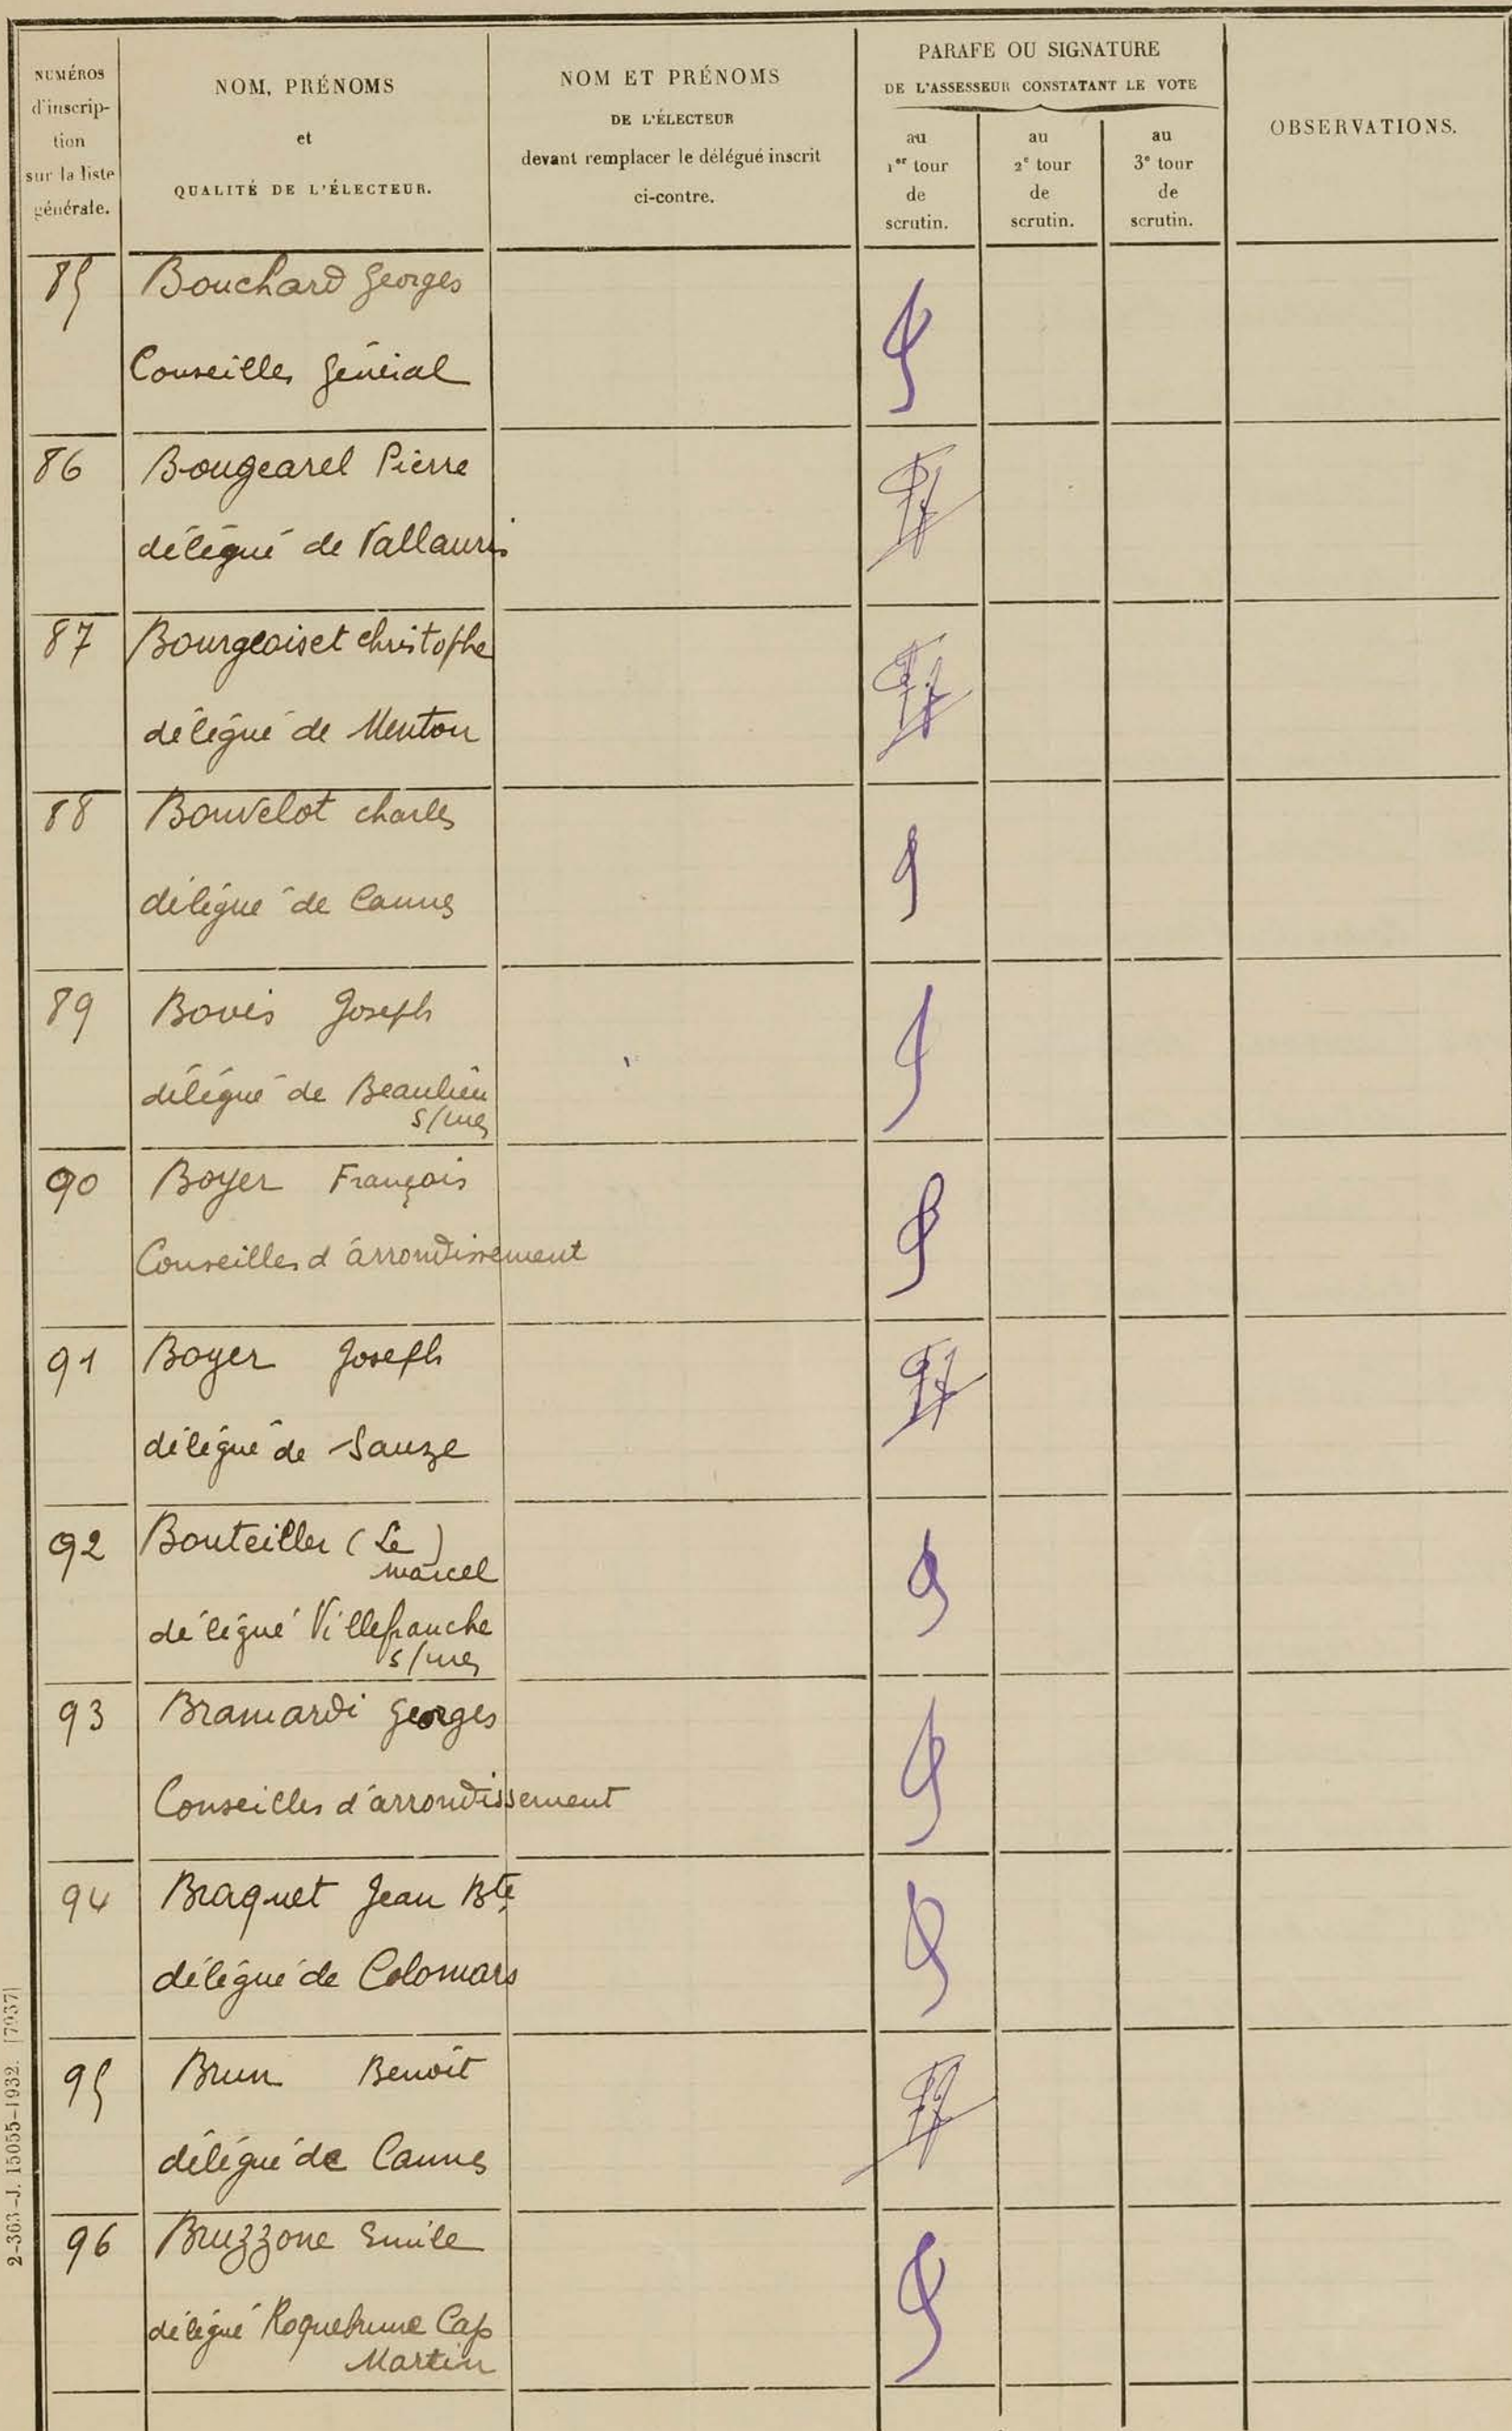 NUMÉROS
d'inscrip-
tion
sur la liste
générale.
NOM, PRÉNOMS
et
QUALITÉ DE L'ÉLECTEUR.
NOM ET PRÉNOMS
DE L'ÉLECTEUR
devant remplacer le délégué inscrit
ci-contre.
PARAFE OU SIGNATURE
DE L'ASSESSEUR CONSTATANT LE VOTE
au
1er tour
de
scrutin.
au
2e tour
de
scrutin.
au
3e tour
de
scrutin.
OBSERVATIONS.
85 Bouchard Georges
Conseiller Général
86 Bougearel Pierre
délégué de Vallauris
87 Bourgeoiset christophe
délégué de Menton
88 Bouvelot charles
délégué de Cannes
89 Bovis Joseph
délégué de Beaulieu
s/mer
90 Boyer François
Conseiller d'arrondissement
91 Boyer Joseph
délégué de Sauze
92 Bouteiller (Le)
marcel
délégué Villefranche
s/mer
93 Bramardi Georges
Conseiller d'arrondissement
94 Braquet Jean Bte
délégué de Colomars
95 Brun Benoît
délégué de Cannes
96 Bruzzone Emile
délégué Roquebrune Cap
Martin
2-363-J. 15055-1932. [7937]